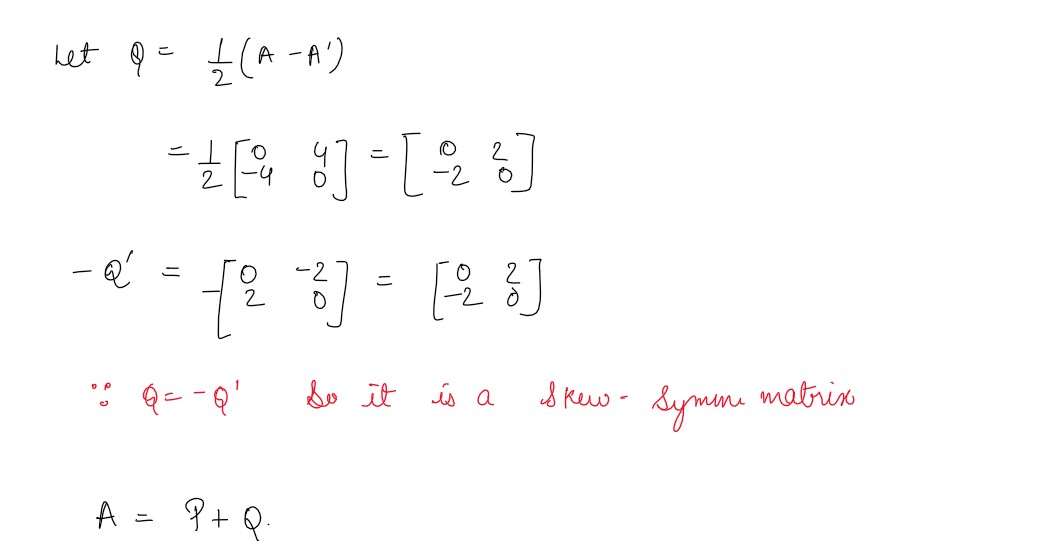 Let Q = 1/2 (A - A')
= 1/2 [0 4; -4 0] = [0 2; -2 0]
- Q' = -[0 -2; 2 0] = [0 2; -2 0]
∵ Q = -Q' So it is a skew- symm matrix
A = P + Q.